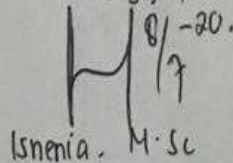 8/7 -20.
Isnenia. M.Sc